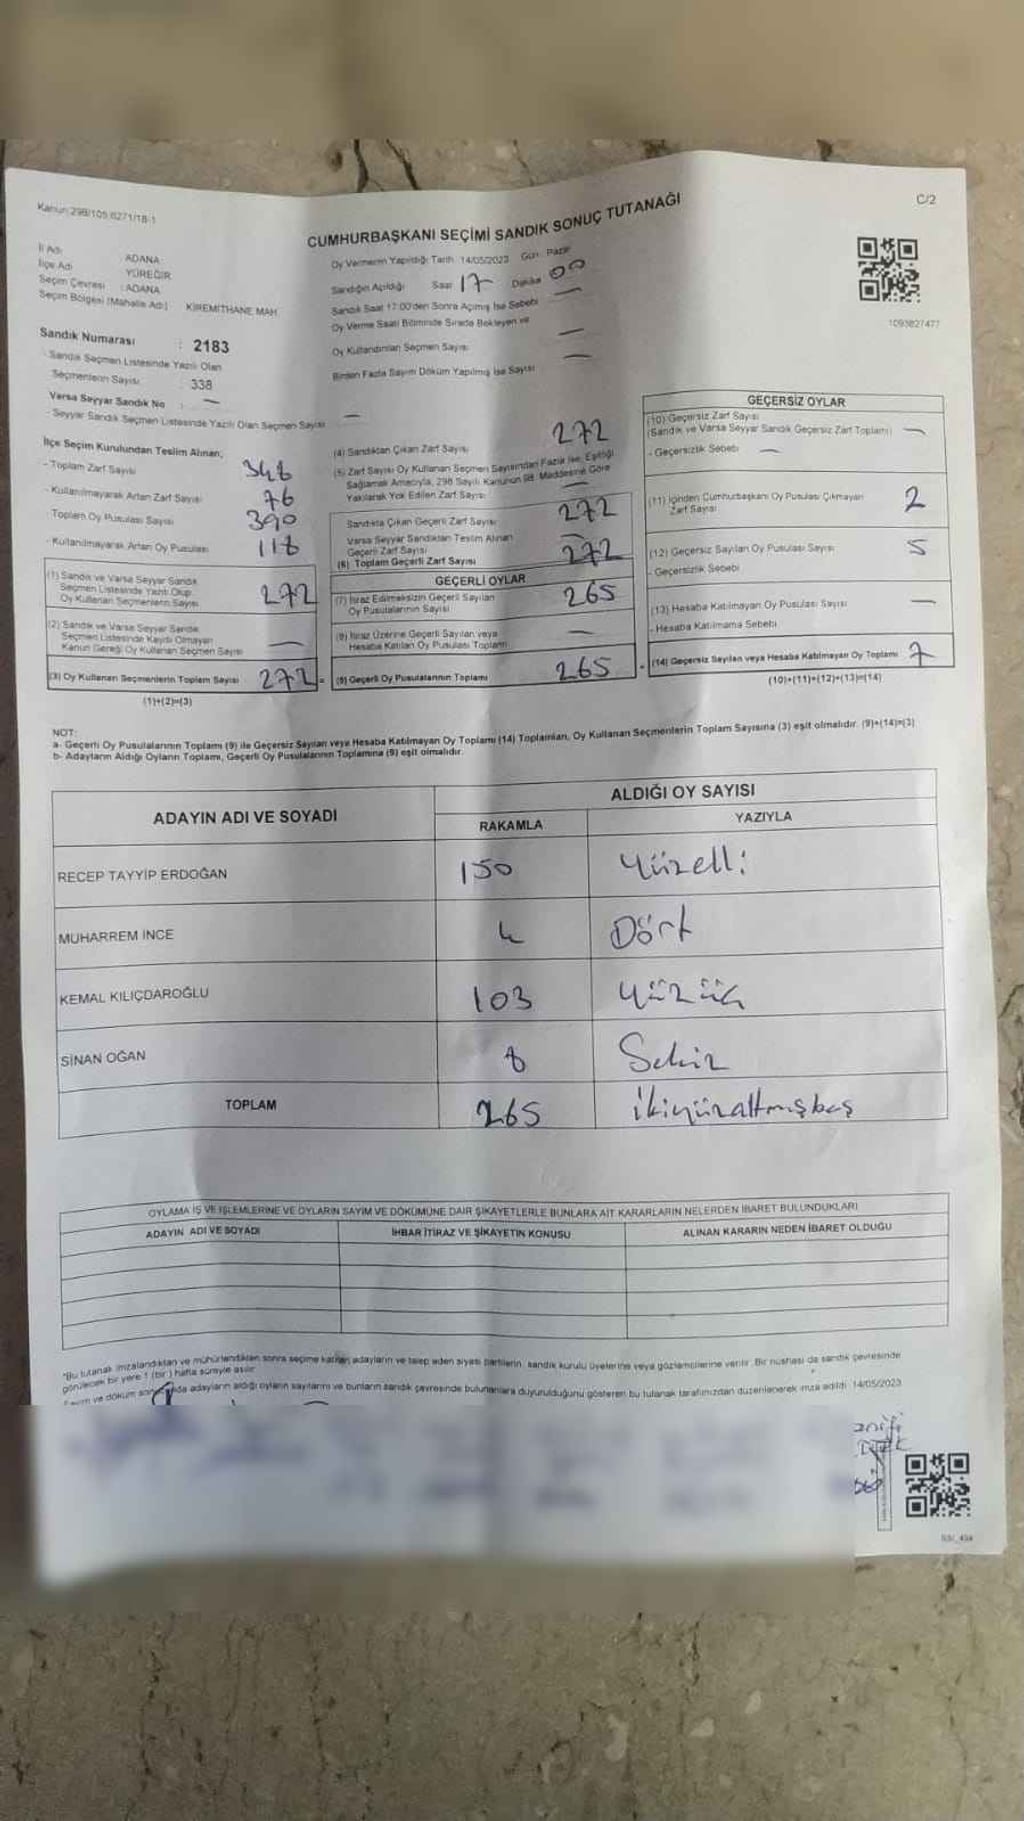 Kanun:298/105;6271/18-1
C/2
CUMHURBAŞKANI SEÇİMİ SANDIK SONUÇ TUTANAĞI
İl Adı : ADANA
İlçe Adı : YÜREĞİR
Seçim Çevresi : ADANA
Seçim Bölgesi (Mahalle Adı) : KİREMİTHANE MAH.
Sandık Numarası : 2183
- Sandık Seçmen Listesinde Yazılı Olan
Seçmenlerin Sayısı : 338
Varsa Seyyar Sandık No : —
- Seyyar Sandık Seçmen Listesinde Yazılı Olan Seçmen Sayısı —
Oy Vermenin Yapıldığı Tarih: 14/05/2023 Gün: Pazar
Sandığın Açıldığı Saat 17 Dakika 00
Sandık Saat 17:00'den Sonra Açmış İse Sebebi —
Oy Verme Saati Bitiminde Sırada Bekleyen ve
Oy Kullandırılan Seçmen Sayısı —
Birden Fazla Sayım Döküm Yapılmış İse Sayısı —
1093827477
İlçe Seçim Kurulundan Teslim Alınan;
- Toplam Zarf Sayısı 348
- Kullanılmayarak Artan Zarf Sayısı 76
- Toplam Oy Pusulası Sayısı 390
- Kullanılmayarak Artan Oy Pusulası 118
(1) Sandık ve Varsa Seyyar Sandık
Seçmen Listesinde Yazılı Olup
Oy Kullanan Seçmenlerin Sayısı 272
(2) Sandık ve Varsa Seyyar Sandık
Seçmen Listesinde Kaydı Olmayan
Kanun Gereği Oy Kullanan Seçmen Sayısı —
(3) Oy Kullanan Seçmenlerin Toplam Sayısı 272 =
(1)+(2)=(3)
(4) Sandıktan Çıkan Zarf Sayısı 272
(5) Zarf Sayısı Oy Kullanan Seçmen Sayısından Fazla İse, Eşitliği
Sağlamak Amacıyla, 298 Sayılı Kanunun 98. Maddesine Göre
Yakılarak Yok Edilen Zarf Sayısı —
Sandıkta Çıkan Geçerli Zarf Sayısı 272
Varsa Seyyar Sandıktan Teslim Alınan
Geçerli Zarf Sayısı —
(6) Toplam Geçerli Zarf Sayısı 272
GEÇERLİ OYLAR
(7) İtiraz Edilmeksizin Geçerli Sayılan
Oy Pusulalarının Sayısı 265
(8) İtiraz Üzerine Geçerli Sayılan veya
Hesaba Katılan Oy Pusulası Toplamı —
(9) Geçerli Oy Pusulalarının Toplamı 265
GEÇERSİZ OYLAR
(10) Geçersiz Zarf Sayısı
(Sandık ve Varsa Seyyar Sandık Geçersiz Zarf Toplamı) —
- Geçersizlik Sebebi —
(11) İçinden Cumhurbaşkanı Oy Pusulası Çıkmayan
Zarf Sayısı 2
(12) Geçersiz Sayılan Oy Pusulası Sayısı 5
- Geçersizlik Sebebi
(13) Hesaba Katılmayan Oy Pusulası Sayısı —
- Hesaba Katılmama Sebebi
+ (14) Geçersiz Sayılan veya Hesaba Katılmayan Oy Toplamı 7
(10)+(11)+(12)+(13)=(14)
NOT:
a- Geçerli Oy Pusulalarının Toplamı (9) ile Geçersiz Sayılan veya Hesaba Katılmayan Oy Toplamı (14) Toplamları, Oy Kullanan Seçmenlerin Toplam Sayısına (3) eşit olmalıdır. (9)+(14)=(3)
b- Adayların Aldığı Oyların Toplamı, Geçerli Oy Pusulalarının Toplamına (9) eşit olmalıdır.
ADAYIN ADI VE SOYADI
ALDIĞI OY SAYISI
RAKAMLA
YAZIYLA
RECEP TAYYİP ERDOĞAN 150 Yüzelli
MUHARREM İNCE 4 Dört
KEMAL KILIÇDAROĞLU 103 yüzüç
SİNAN OĞAN 8 Sekiz
TOPLAM 265 ikiyüzaltmışbeş
OYLAMA İŞ VE İŞLEMLERİNE VE OYLARIN SAYIM VE DÖKÜMÜNE DAİR ŞİKAYETLERLE BUNLARA AİT KARARLARIN NELERDEN İBARET BULUNDUKLARI
ADAYIN ADI VE SOYADI
İHBAR İTİRAZ VE ŞİKAYETİN KONUSU
ALINAN KARARIN NEDEN İBARET OLDUĞU
*Bu tutanak imzalandıktan ve mühürlendikten sonra seçime katılan adayların ve talep eden siyasi partilerin, sandık kurulu üyelerine veya gözlemcilerine verilir. Bir nüshası da sandık çevresinde
görülecek bir yere 1 (bir) hafta süreyle asılır.
Sayım ve döküm adayların aldığı oyların sayılarını ve bunların sandık çevresinde bulunanlara duyurulduğunu gösteren bu tutanak tarafımızdan düzenlenerek imza edildi. 14/05/2023